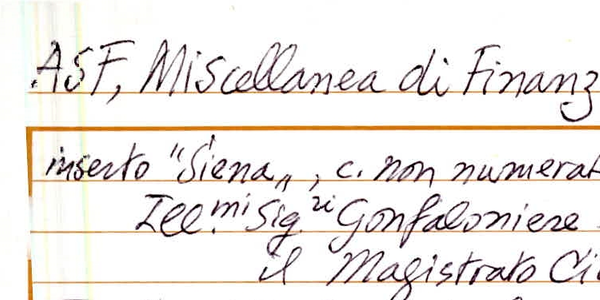 ASF, Miscellanea di Finanz
inserto "Siena", c. non numerat
Ill.mi Sig.ri Gonfaloniere
il Magistrato Ci